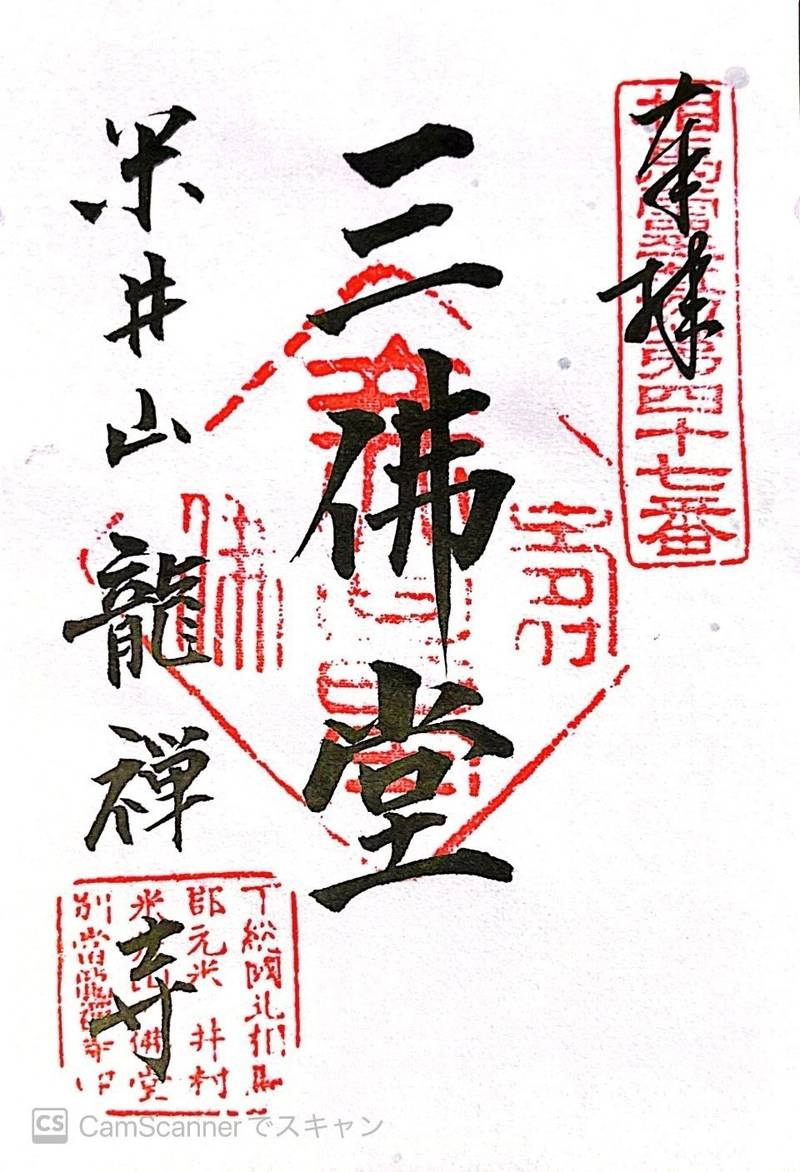 奉拝
相馬 第四十七番
三佛堂
米井山 龍禅寺
下総國北相馬
郡元米井村
米 山 佛堂
別當龍禅寺印
CS CamScannerでスキャン